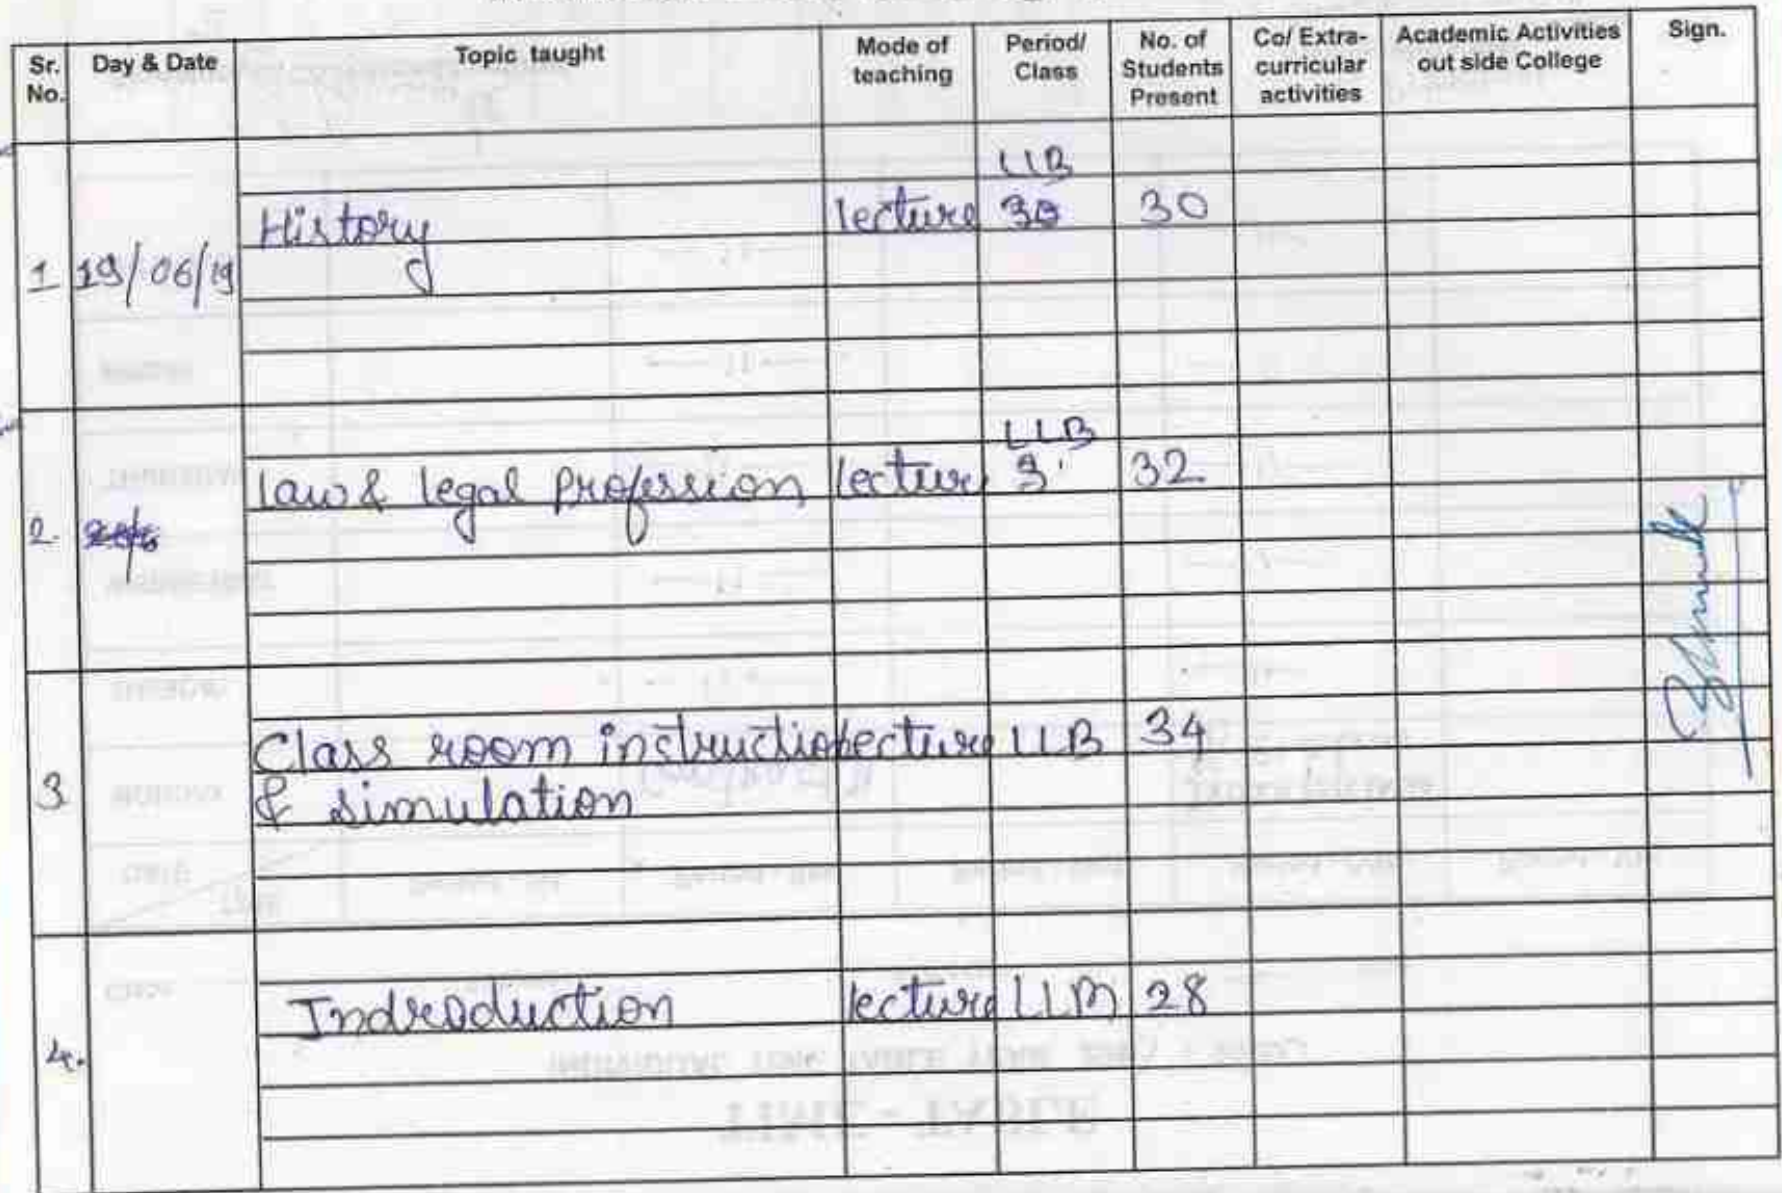 Sr. No. Day & Date Topic taught Mode of teaching Period/ Class No. of Students Present Co/ Extra-curricular activities Academic Activities out side College Sign.
LLB
History lecture 30 30
1 19/06/19
LLB
law & legal profession lecture 3 32
2.
Class room instruction lecture LLB 34
3 & simulation
Indroduction lecture LLM 28
4.